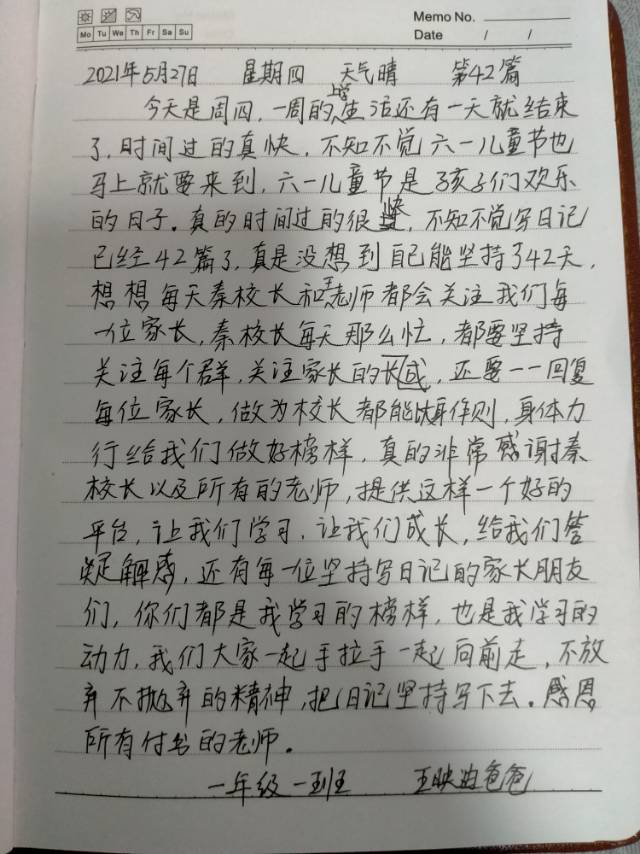 Memo No.
Mo Tu We Th Fr Sa Su
Date / /
2021年5月27日 星期四 天气晴 第42篇
今天是周四,一周的上学生活还有一天就结束
了,时间过的真快,不知不觉六一儿童节也
马上就要来到,六一儿童节是孩子们欢乐
的日子。真的时间过的很快,不知不觉写日记
已经42篇了,真是没想到自己能坚持了42天,
想想每天秦校长和王老师都会关注我们每
一位家长,秦校长每天那么忙,都要坚持
关注每个群,关注家长的长成,还要一一回复
每位家长,做为校长都能以身作则,身体力
行给我们做好榜样,真的非常感谢秦
校长以及所有的老师,提供这样一个好的
平台,让我们学习,让我们成长,给我们答
疑解惑,还有每一位坚持写日记的家长朋友
们,你们都是我学习的榜样,也是我学习的
动力,我们大家一起手拉手一起向前走,不放
弃不抛弃的精神,把日记坚持写下去。感恩
所有付出的老师。
一年级一班 王映 爸爸